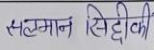 सलमान सिद्दीकी